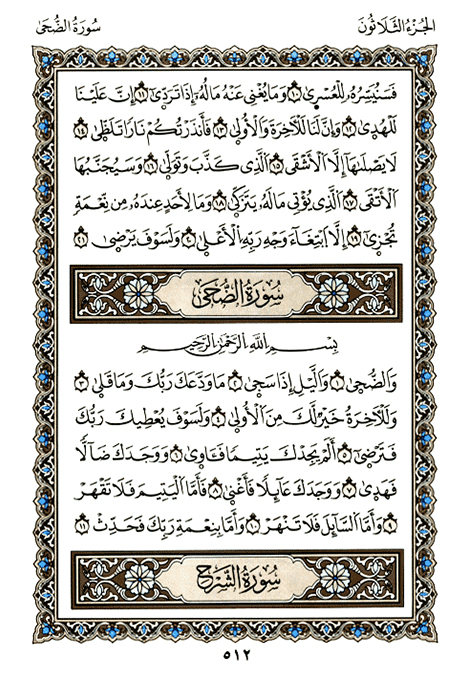 الجزء الثلاثون
سورة الضحى
فَسَنُيَسِّرُهُۥ لِلْعُسْرَىٰ ١٠ وَمَا يُغْنِى عَنْهُ مَالُهُۥٓ إِذَا تَرَدَّىٰٓ ١١ إِنَّ عَلَيْنَا
لَلْهُدَىٰ ١٢ وَإِنَّ لَنَا لَلْءَاخِرَةَ وَٱلْأُولَىٰ ١٣ فَأَنذَرْتُكُمْ نَارًا تَلَظَّىٰ ١٤
لَا يَصْلَىٰهَآ إِلَّا ٱلْأَشْقَى ١٥ ٱلَّذِى كَذَّبَ وَتَوَلَّىٰ ١٦ وَسَيُجَنَّبُهَا
ٱلْأَتْقَى ١٧ ٱلَّذِى يُؤْتِى مَالَهُۥ يَتَزَكَّىٰ ١٨ وَمَا لِأَحَدٍ عِندَهُۥ مِن نِّعْمَةٍ
تُجْزَىٰٓ ١٩ إِلَّا ٱبْتِغَآءَ وَجْهِ رَبِّهِ ٱلْأَعْلَىٰ ٢٠ وَلَسَوْفَ يَرْضَىٰ ٢١
سُورَةُ الضُّحَىٰ
بِسْمِ ٱللَّهِ ٱلرَّحْمَٰنِ ٱلرَّحِيمِ
وَٱلضُّحَىٰ ١ وَٱلَّيْلِ إِذَا سَجَىٰ ٢ مَا وَدَّعَكَ رَبُّكَ وَمَا قَلَىٰ ٣
وَلَلْءَاخِرَةُ خَيْرٌ لَّكَ مِنَ ٱلْأُولَىٰ ٤ وَلَسَوْفَ يُعْطِيكَ رَبُّكَ
فَتَرْضَىٰٓ ٥ أَلَمْ يَجِدْكَ يَتِيمًا فَـَٔاوَىٰ ٦ وَوَجَدَكَ ضَآلًّا
فَهَدَىٰ ٧ وَوَجَدَكَ عَآئِلًا فَأَغْنَىٰ ٨ فَأَمَّا ٱلْيَتِيمَ فَلَا تَقْهَرْ
٩ وَأَمَّا ٱلسَّآئِلَ فَلَا تَنْهَرْ ١٠ وَأَمَّا بِنِعْمَةِ رَبِّكَ فَحَدِّثْ ١١
سُورَةُ الشَّرْحِ
٥١٢